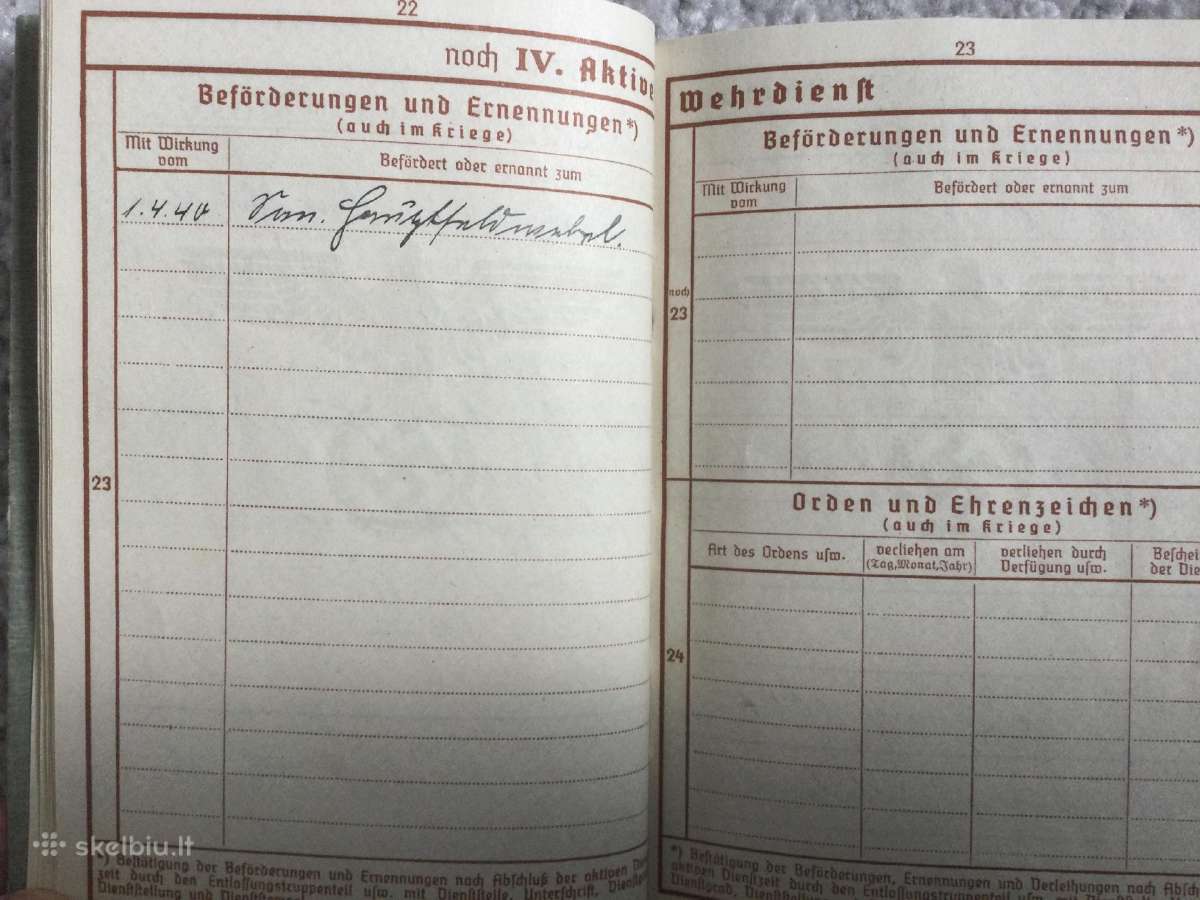 22
noch IV. Aktive
Beförderungen und Ernennungen*)
(auch im Kriege)
Mit Wirkung vom
Befördert oder ernannt zum
1.4.40 San. Hauptfeldwebel.
23
*) Bestätigung der Beförderungen und Ernennungen nach Abschluß der aktiven Dienst
zeit durch den Entlassungstruppenteil usw. mit Dienststelle, Unterschrift, Dienst
23
Wehrdienst
Beförderungen und Ernennungen*)
(auch im Kriege)
Mit Wirkung vom
Befördert oder ernannt zum
noch
23
Orden und Ehrenzeichen*)
(auch im Kriege)
Art des Ordens usw.
verliehen am
(Tag,Monat,Jahr)
verliehen durch
Verfügung usw.
Beschei
der Die
24
*) Bestätigung der Beförderungen, Ernennungen und Verleihungen nach Absch
aktiven Dienstzeit durch den Entlassungstruppenteil usw. mit
skelbiu.lt